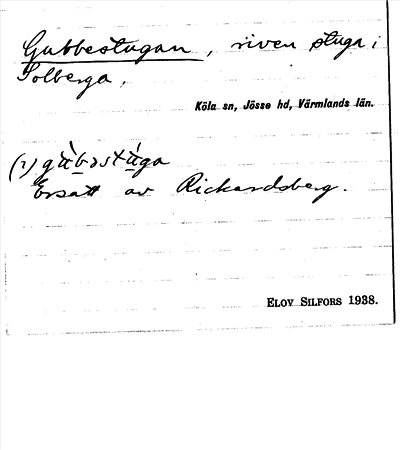 Gubbestugan, riven stuga i
Solberga.
Köla sn, Jösse hd, Värmlands län.
(i) gu̇̀bəstu̇́ga
Ersatt av Rickardsberg.
ELOV SILFORS 1938.